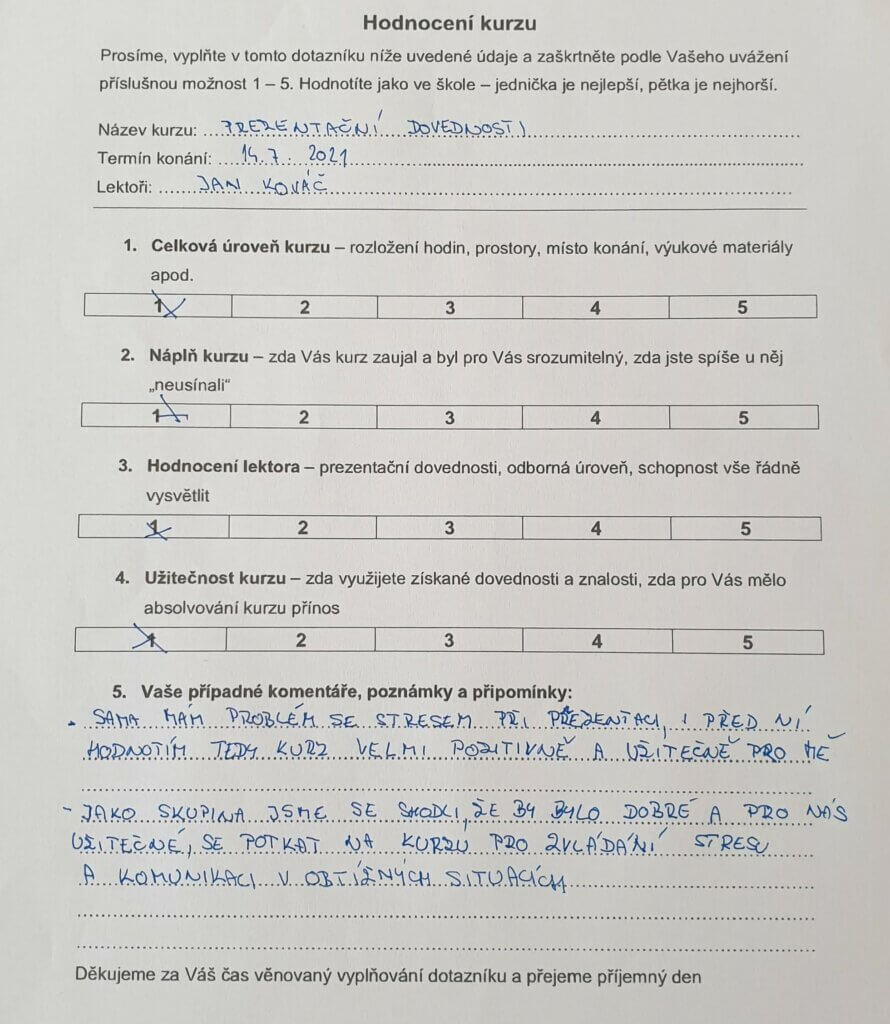 Hodnocení kurzu
Prosíme, vyplňte v tomto dotazníku níže uvedené údaje a zaškrtněte podle Vašeho uvážení
příslušnou možnost 1 – 5. Hodnotíte jako ve škole – jednička je nejlepší, pětka je nejhorší.
Název kurzu: PREZENTAČNÍ DOVEDNOSTI
Termín konání: 14.7. 2021
Lektoři: JAN KOVÁČ
1. Celková úroveň kurzu – rozložení hodin, prostory, místo konání, výukové materiály
apod.
1 2 3 4 5
2. Náplň kurzu – zda Vás kurz zaujal a byl pro Vás srozumitelný, zda jste spíše u něj
„neusínali“
1 2 3 4 5
3. Hodnocení lektora – prezentační dovednosti, odborná úroveň, schopnost vše řádně
vysvětlit
1 2 3 4 5
4. Užitečnost kurzu – zda využijete získané dovednosti a znalosti, zda pro Vás mělo
absolvování kurzu přínos
1 2 3 4 5
5. Vaše případné komentáře, poznámky a připomínky:
- SAMA MÁM PROBLÉM SE STRESEM PŘI PREZENTACI, I PŘED NÍ
HODNOTÍM TEDY KURZ VELMI POZITIVNĚ A UŽITEČNĚ PRO MĚ
- JAKO SKUPINA JSME SE SHODLI, ŽE BY BYLO DOBRÉ A PRO NÁS
UŽITEČNÉ, SE POTKAT NA KURZU PRO ZVLÁDÁNÍ STRESU
A KOMUNIKACI V OBTÍŽNÝCH SITUACÍCH
Děkujeme za Váš čas věnovaný vyplňování dotazníku a přejeme příjemný den